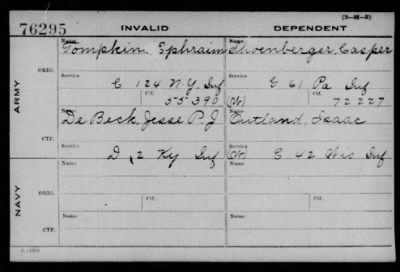 (3-M-2)
76295 INVALID DEPENDENT
ARMY
ORIG.
Name Tompkin Ephraim
Name Shoenberger, Casper
Service C 124 N.Y. Inf
Ctf. 55390
Service G 61 Pa Inf
(W) Ctf. 72227
CTF.
De Beck, Jesse P. J.
Rutland, Isaac
D, 2 Ky Inf
(W) E 42 Wis Inf
NAVY
ORIG.
Name
Name
Service Ctf.
Service Ctf.
CTF.
Name
Name